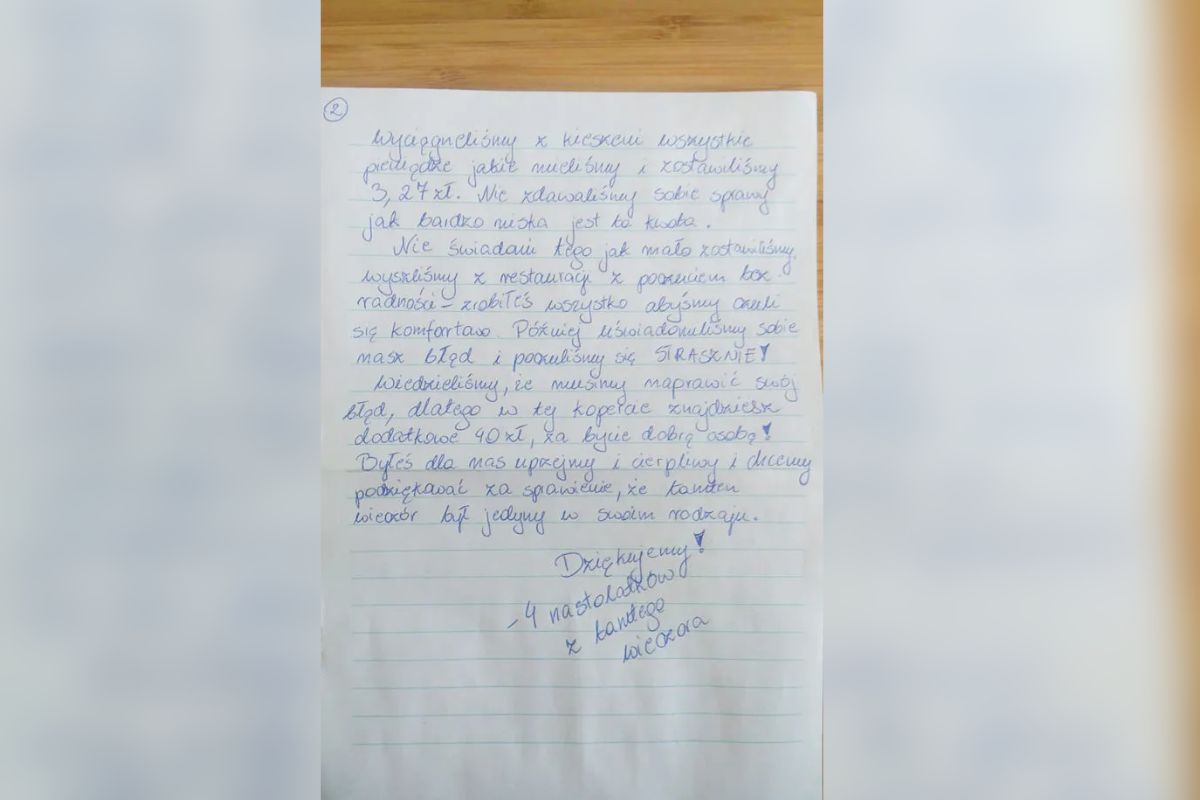 2
Wyciągneliśmy z kieszeni wszystkie
pieniądze jakie mieliśmy i zostawiliśmy
3,27 zł. Nie zdawaliśmy sobie sprawy
jak bardzo niska jest ta kwota.
Nie świadomi tego jak mało zostawiliśmy,
wyszliśmy z restauracji z poczuciem bez
radności – zrobiłeś wszystko abyśmy czuli
się komfortowo. Później uświadomiliśmy sobie
nasz błąd i poczuliśmy się STRASZNIE!
Wiedzieliśmy, że musimy naprawić swój
błąd, dlatego w tej kopercie znajdziesz
dodatkowe 40 zł, za bycie dobrą osobą!
Byłeś dla nas uprzejmy i cierpliwy i chcemy
podziękować za sprawienie, że tamten
wieczór był jedyny w swoim rodzaju.
Dziękujemy!
- 4 nastolatków
z tamtego
wieczora